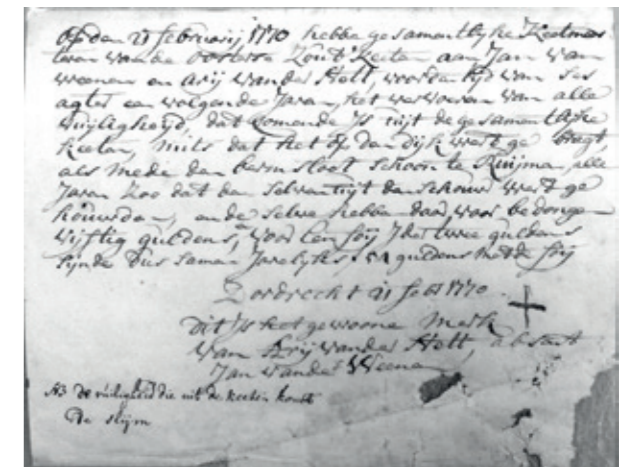 Op den 21 februarij 1770 hebbe gesamentlijke Keetmees
teren van de Oosterse Zout Keeten aan Jan van
Weenen en Arij van der Stolt, voor den tijd van Ses
agter een volgende Jaren, het vervoeren van alle
Vuijligheijd, dat komende is uijt de gesamentlijke
Keeten, mits dat het op den dijk werd ge bragt,
als mede den berm sloot schoon te Ruijmen, alle
Jaren Zoo dat den selven tijt den schouw werd ge
houwden, en de selve hebbe daar voor be donge
vijftig guldens, voor een foij Jder twee guldens
sijnde Dus samen Jarelijks 54 guldens met de foij
Dordrecht 21 1770
Dit Js het gewoone Merk
van Arij van der Stolt, absent
Jan van der Weenen
NB de vuiligheid die uit de keeten komt
De slijm